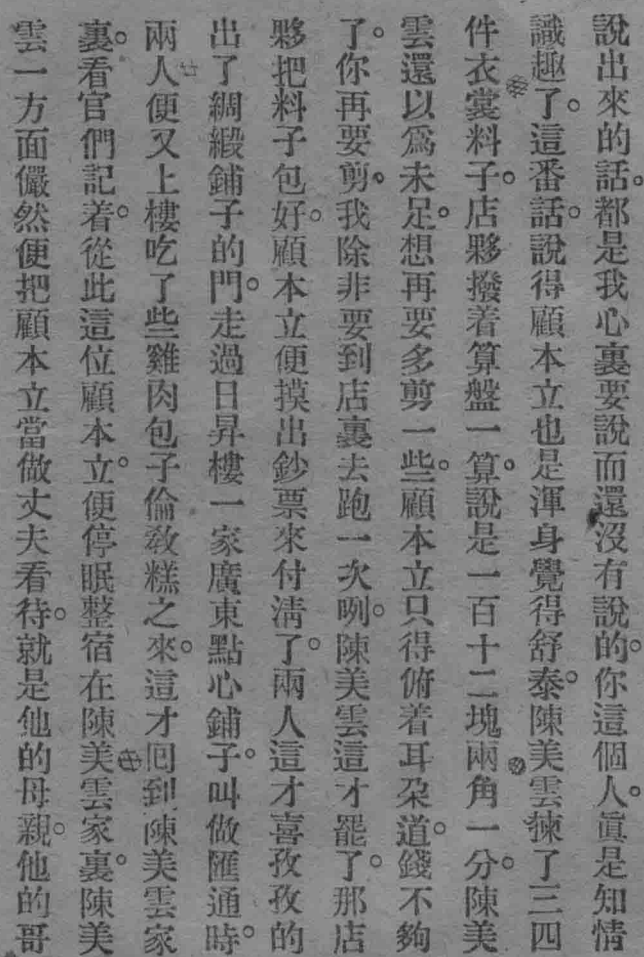 說出來的話。都是我心裏要說而還沒有說的。你這個人。眞是知情
識趣了。這番話。說得顧本立也是渾身覺得舒泰。陳美雲揀了三四
件衣裳料子。店夥撥着算盤一算。說是一百十二塊兩角一分。陳美
雲還以爲未足。想再要多剪一些。顧本立只得俯着耳朶道。錢不夠
了。你再要剪。我除非要到店裏去跑一次咧。陳美雲這才罷了。那店
夥把料子包好。顧本立便摸出鈔票來付淸了。兩人這才喜孜孜的
出了綢緞鋪子的門。走過日昇樓一家廣東點心鋪子。叫做匯通時。
兩人便又上樓吃了些雞肉包子倫敎糕之來。這才回到陳美雲家
裏。看官們記着。從此這位顧本立。便停眠整宿在陳美雲家裏。陳美
雲一方面儼然便把顧本立當做丈夫看待。就是他的母親。他的哥